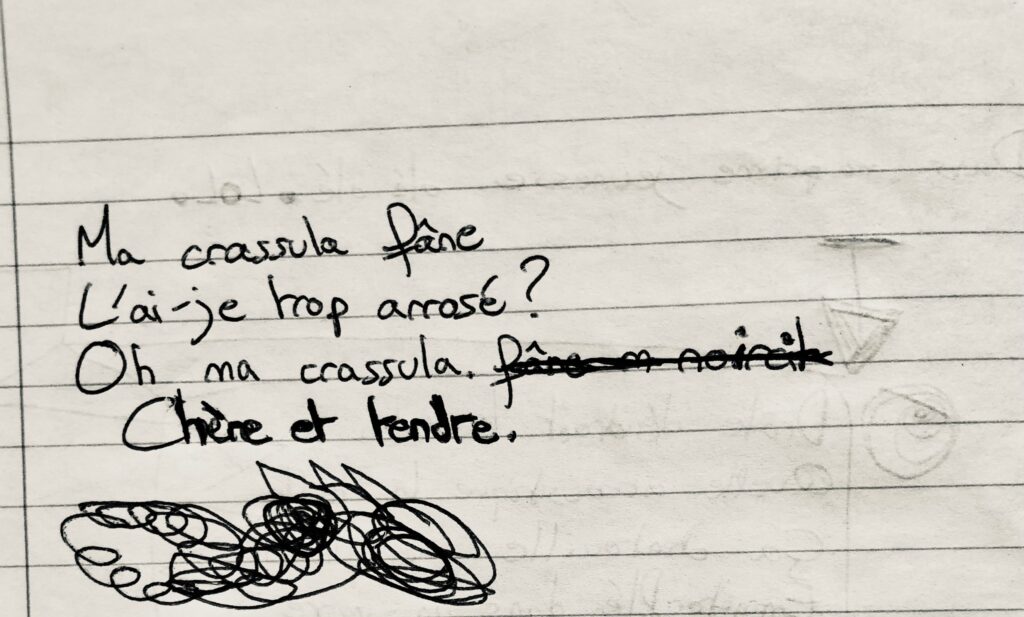 Ma crassula fâne
L'ai-je trop arrosé ?
Oh ma crassula. fâne m noircit
Chère et tendre.